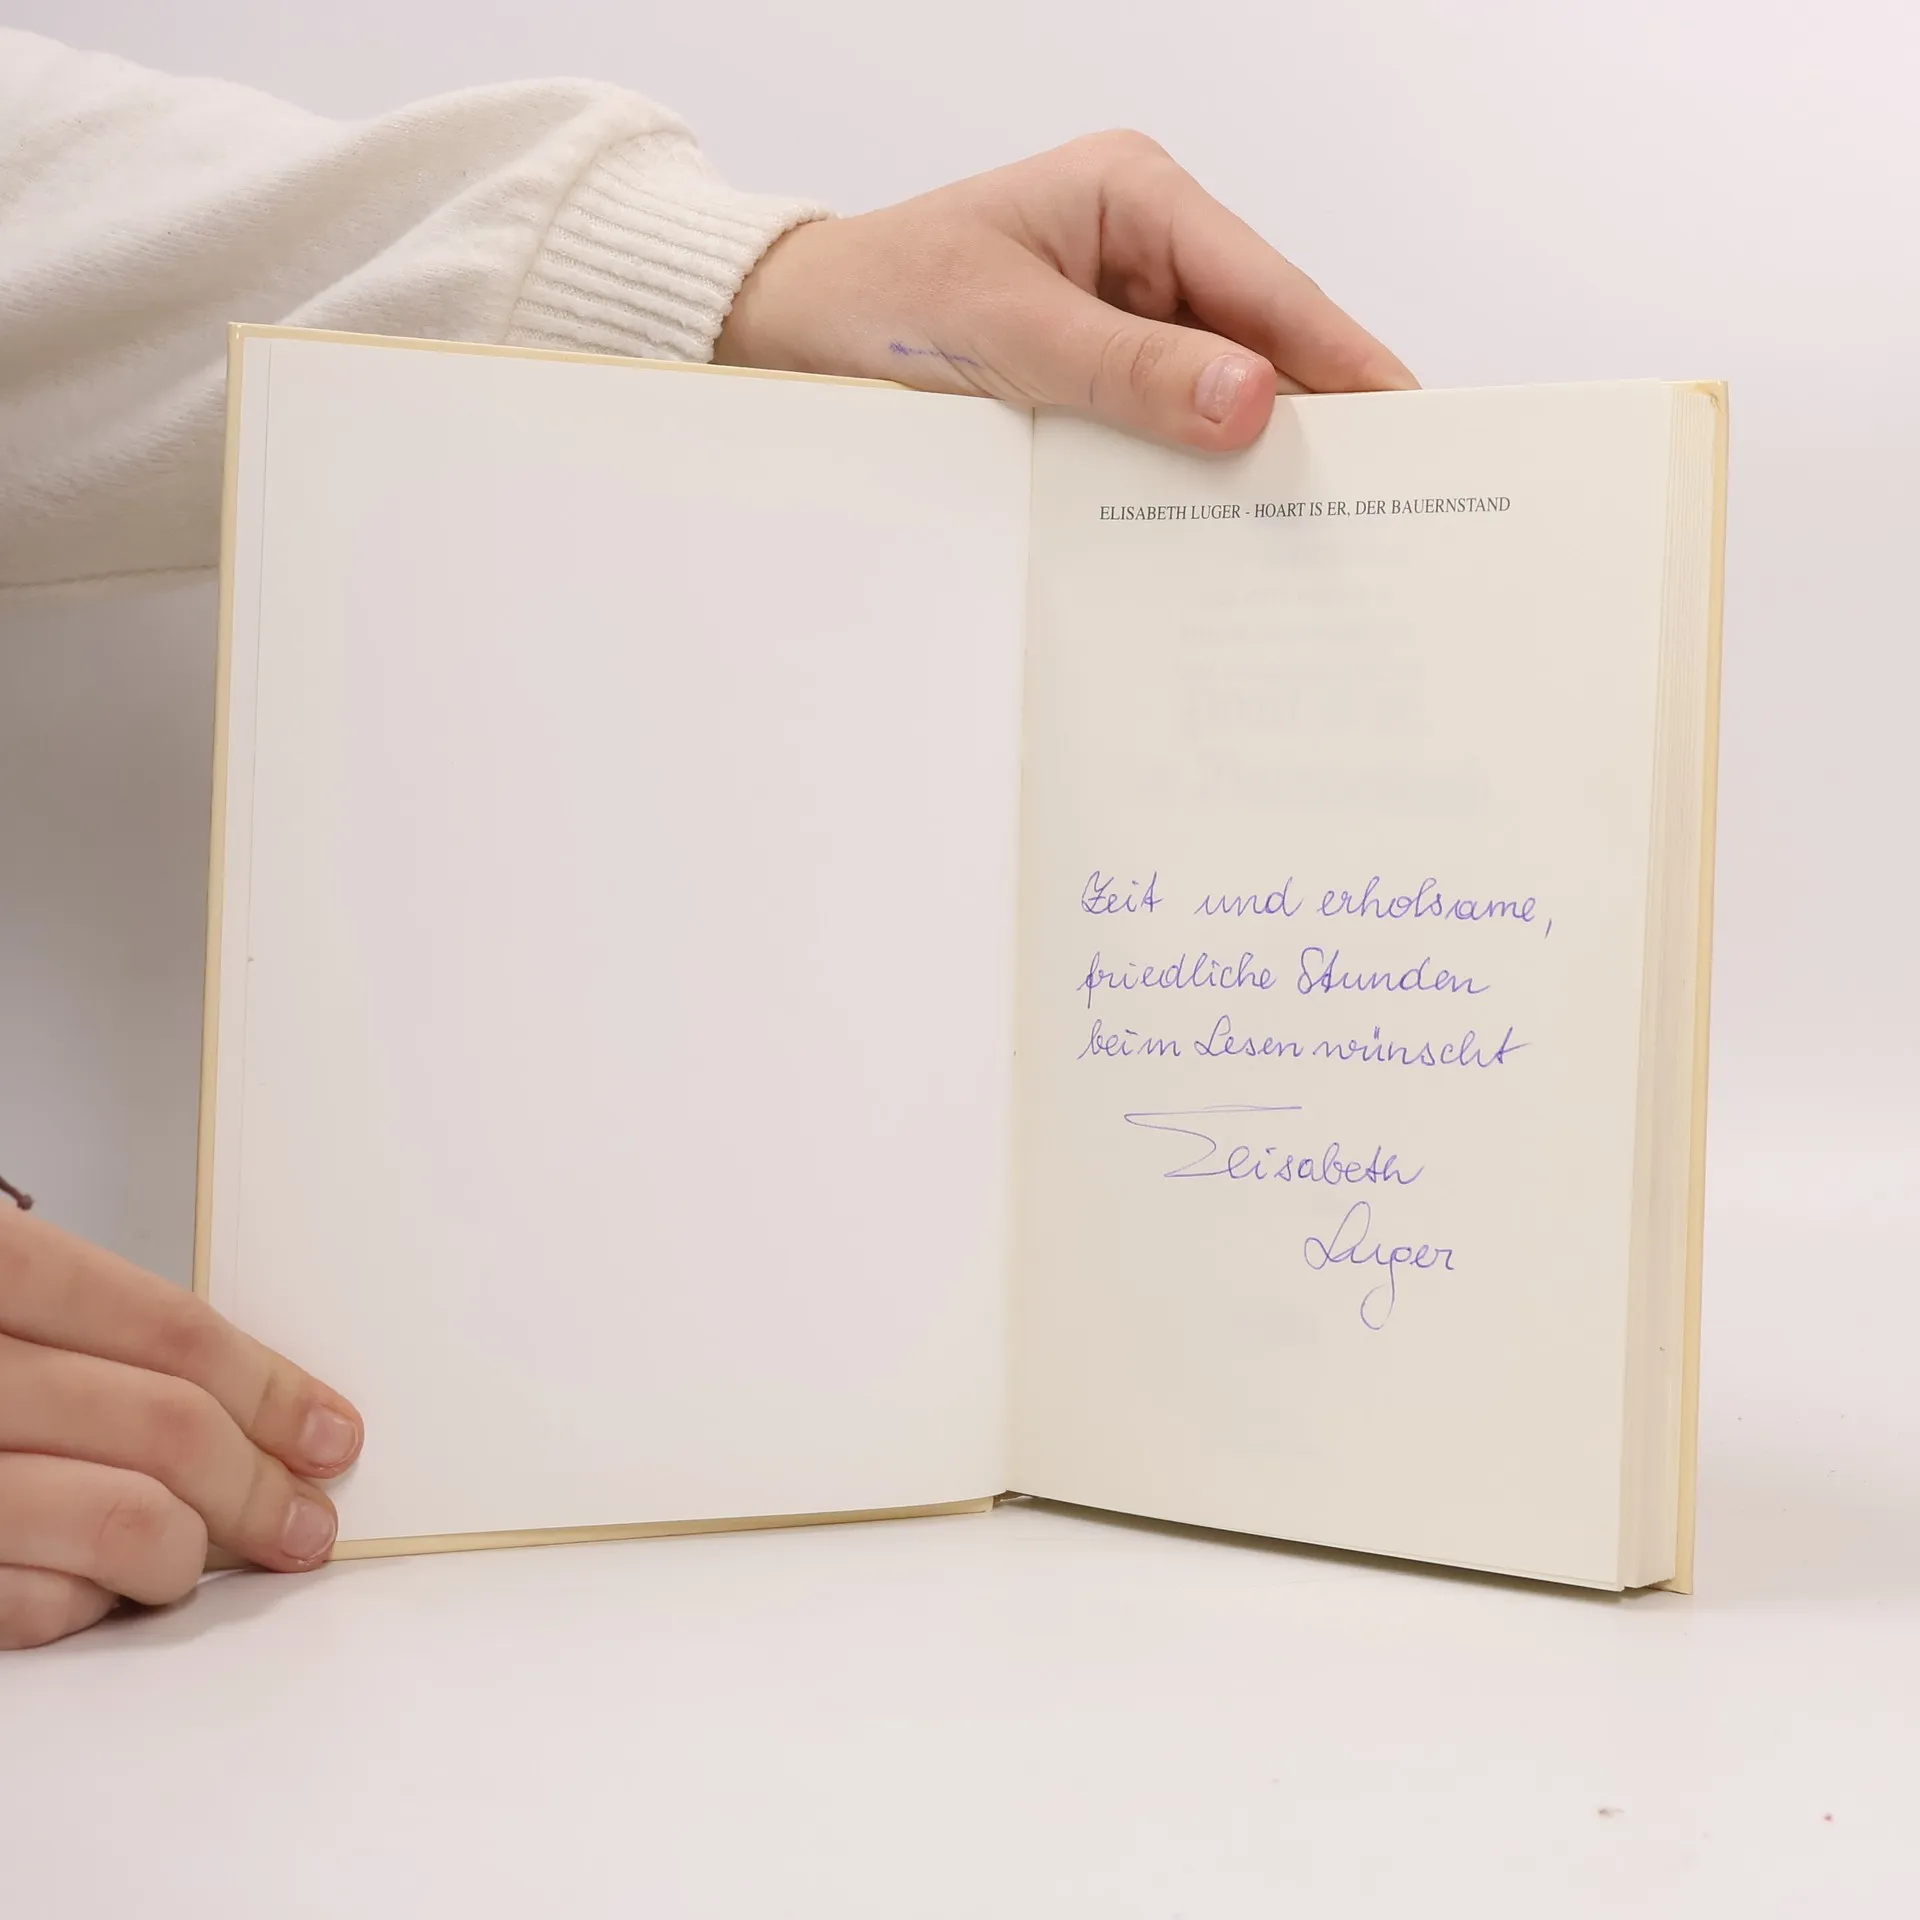 ELISABETH LUGER - HOART IS ER, DER BAUERNSTAND
Zeit und erholsame,
friedliche Stunden
beim Lesen wünscht
Elisabeth
Luger